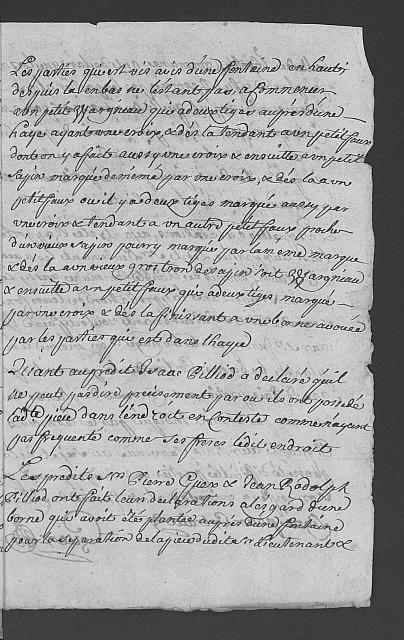 Les parties qui est vis avis d'une fontaine en hautj
depuis la en bas ne l'estant pas, a commencer
a un petit Vargneau qui a deux tiges aupres d'une
haye ayant une croix, & dès la tendant a un petit faux
dont on y a fait aussy une croix & ensuitte a un petit
sapin marqué de méme par une croix, & dès la a un
petit faux ou il y a deux tiges marqué aussy par
une croix & tendant a un autre petit faux proche
d'un vieux sapin pourry marqué par la méme marque
& dès la a un vieux gros tronc de sapin soit Vargneau
& ensuitte a un petit faux qui a deux tiges marqué
par une croix & dès la finissant a une borne avouée
par les parties qui est dans l'haye
Quant au predit Isaac Pilliod a declaré qu'il
ne peut pas dire precisement par ou ils ont possedé
la dte piece dans l'endroit en Conteste comme n'ayant
pas frequenté comme ses freres ledit endroit
Les predits Srs Pierre Cuex & Jean Rodolph
Pilliod ont fait leurs declarations a l'esgard d'une
borne qui avoit étés plantée aupres d'une fontaine
pour la separation de la piece dudit Sr Lieutenant &